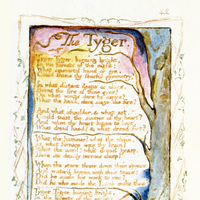 42
The Tyger.
Tyger Tyger, burning bright,
In the forests of the night;
What immortal hand or eye,
Could frame thy fearful symmetry?
In what distant deeps or skies.
Burnt the fire of thine eyes?
On what wings dare he aspire?
What the hand, dare sieze the fire?
And what shoulder, & what art,
Could twist the sinews of thy heart?
And when thy heart began to beat,
What dread hand? & what dread feet?
What the hammer? what the chain,
In what furnace was thy brain?
What the anvil? what dread grasp,
Dare its deadly terrors clasp!
When the stars threw down their spears
And water'd heaven with their tears:
Did he smile his work to see?
Did he who made the Lamb make thee?
Tyger Tyger burning bright,